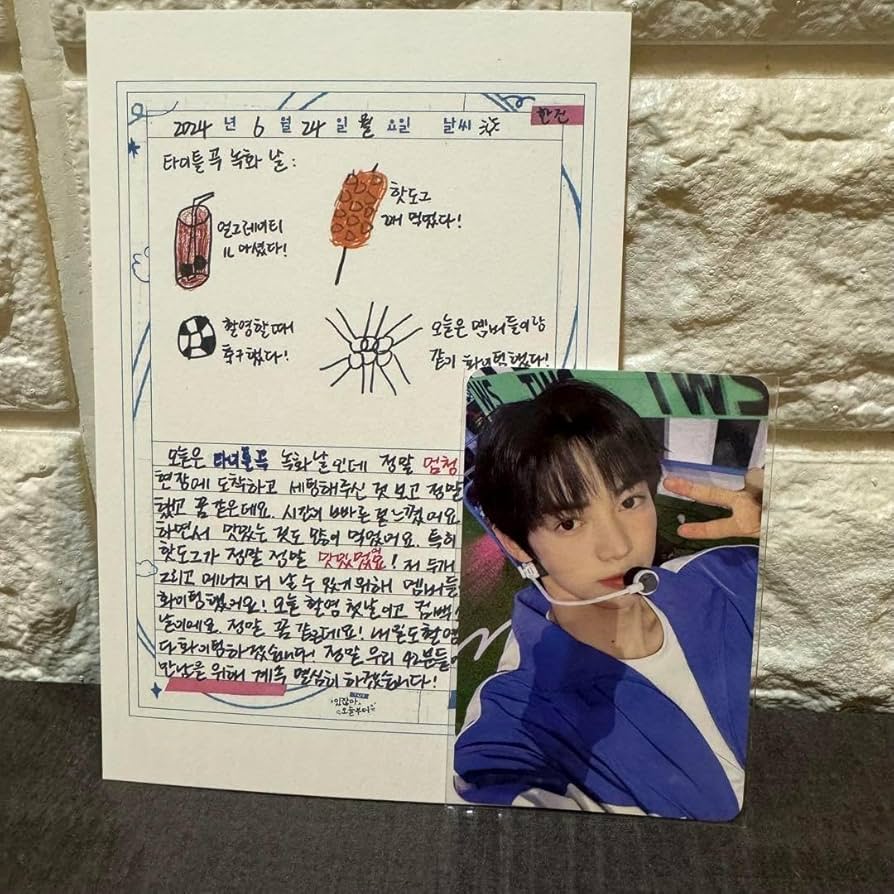 2024 년 6 월 24 일 월 요일 날씨
한진
타이틀곡 녹화 날:
얼그레이티
1L 마셨다!
핫도그
2개 먹었다!
촬영할 때
축구했다!
오늘은 멤버들이랑
같이 화이팅했다!
TWS TWS TWS
오늘은 타이틀곡 녹화날인데 정말 멈청
현장에 도착하고 세팅해주신 것 보고 정말
했고 꿈 같은데요. 시간이 빠르 느꼈어요
하면서 맛있는 것도 많이 먹었어요. 특히
핫도그가 정말 정말 맛있었어요! 저 두개
그리고 에너지 더 날 수 있게 위해 멤버들
화이팅했어요! 오늘 촬영 첫날이고 컴백
날이에요. 정말 꿈 같은데요! 내일도 촬영
다 화이팅하겠습니다. 정말 우리 42분들
만남을 위해 계속 열심히 하겠습니다!
있잖아
오늘부터